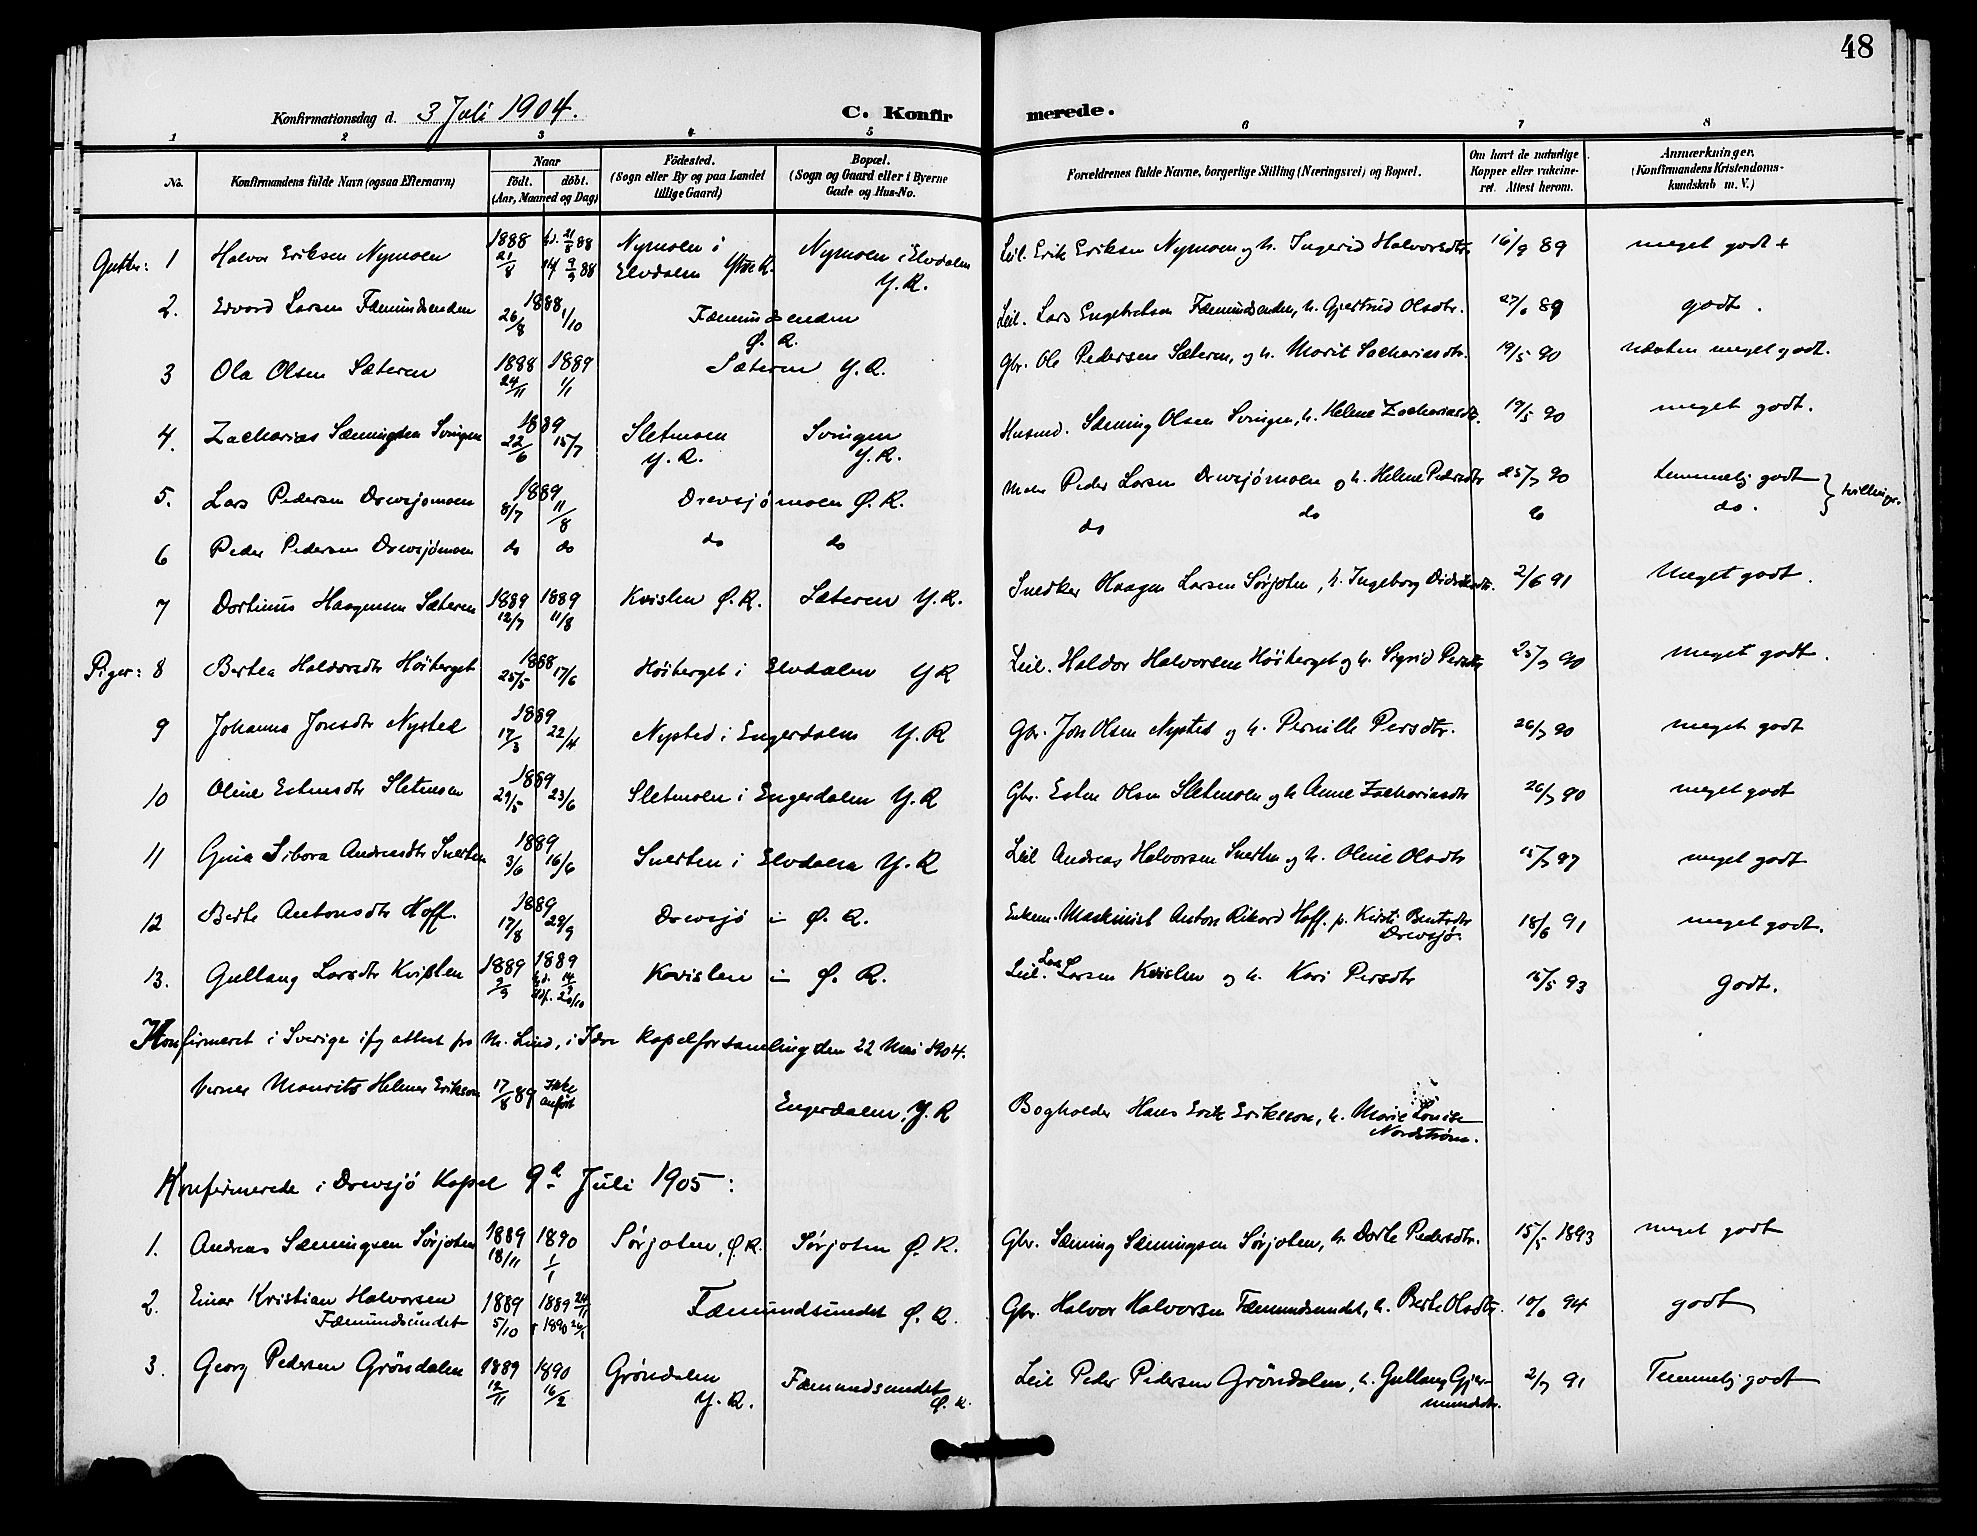 48
Konfirmationsdag d. 3 Juli 1904.
C. Konfirmerede.
1 2 3 4 5 6 7 8
No.
Konfirmandens fulde Navn (ogsaa Efternavn)
Naar
födt. döbt.
(Aar, Maaned og Dag)
Födested.
(Sogn eller By og paa Landet
tillige Gaard)
Bopæl.
(Sogn og Gaard eller i Byerne
Gade og Hus-No.
Forældrenes fulde Navne, borgerlige Stilling (Næringsvei) og Bopæl.
Om havt de naturlige
Kopper eller vakcine-
ret. Attest herom.
Anmærkninger.
(Konfirmandens Kristendoms-
kundskab m. V.)
1 Halvor Eriksen Nymoen 1888 21/8 hd. 21/8 88 9/9 88 Nymoen i Elvdalen Ytre R. Nymoen i Elvdalen Y. R. Leil. Erik Eriksen Nymoen og h. Ingerid Halvorsdtr. 16/9 89 meget godt +
2. Edvard Larsen Fæmundsenden 1888 26/8 1/10 Fæmundsenden Ø. R. Leil. Lars Engebretsen Fæmundsenden, h. Gjertrud Olsdtr. 89 godt.
3 Ola Olsen Sæteren 1888 24/11 1889 1/1 Sæteren Y. R. Gbr. Ole Pedersen Sæteren, og h. Marit Sachariasdtr. 19/5 90 Næsten meget godt.
4. Zacharias Sæmingsen Svingen 1889 22/6 15/7 Sletmoen Y. R. Svingen Y. R. Husmd. Sæming Olsen Svingen, h. Helene Zachariasdtr. 19/5 90 meget godt.
5. Lars Pedersen Drevsjømoen 1889 8/7 11/8 Drevsjømoen Ø. R. Peder Larsen Drevsjømoen og h. Helene Pedersdtr 25/7 90 temmelig godt } tvillinger.
6 Peder Pedersen Drevsjömoen do do do do do do do do.
7 Dortinus Haagensen Sæteren 1889 12/7 1889 11/8 Kvislen Ø. R. Sæteren Y. R. Snedker Haagen Larsen Sørjoten, h. Ingeborg 2/6 91 Meget godt.
Piger: 8 Bertea Haldorsdtr Höiberget 1888 25/5 17/6 Höiberget i Elvdalen Y R Leil. Haldor Halvorsen Höiberget og h. Sigrid Persdtr 25/7 90 meget godt.
9 Johanna Jonsdtr Nysted 1889 17/3 22/4 Nysted i Engerdalen Y. R Gbr. Jon Olsen Nysted og h. Pernille Persdtr. 26/7 90 meget godt
10 Oline Estensdtr Sletmoen 1889 29/5 23/6 Sletmoen i Engerdalen Y. R Gbr. Esten Olsen Sletmoen og h Anne Zachariasdtr 26/7 90 meget godt
11 Gina Andreasdtr Snerten 1889 3/6 16/6 Snerten i Elvdalen Y. R Leil Andreas Halvorsen Snerten og h. Oline Olsdtr 15/7 97 meget godt
12 Berte Antonsdtr Hoff. 1889 17/8 29/9 Drevsjö i Ø. R. Enkem. Maskinist Anton Rikard Hoff. Kirsti Bentsdtr Drevsjø. 18/6 91 meget godt.
13. Gullaug Larsdtr Kvislen 1889 9/9 1889 hd. 14/9 20/10 Kvislen i Ø. R. Leil. Lars Larsen Kvislen og h. Kari Persdtr 15/5 93 Godt.
Konfirmeret i Sverige ifg attest fra N. Lind, i Idre Kapelforsamling den 22 Mai 1904.
Verner Mauritz Helmer Eriksson 17/8 89 Ikke anført Engerdalen, Y. R Bogholder Hans Erik Eriksson, h. Marie Louise Nordström.
Konfirmerede i Drevsjö Kapel 9d. Juli 1905:
1. Andreas Sæmingsen Sørjoten 1889 18/11 1890 1/1 Sørjoten, Ø. R. Sørjoten Ø. R. Gbr. Sæming Sæmingsen Sørjoten, h. Dorte Pedersdtr. 15/5 1893 meget godt
2. Einar Kristian Halvorsen Fæmundsundet 1889 5/10 1889 24/11 1890 Fæmundsundet Ø. R. Gbr. Halvor Halvorsen Fæmundsundet, h. Berte Olsdtr. 94 godt
3. Georg Pedersen Gröndalen 1889 12/11 1890 16/2 Gröndalen Y. R. Fæmundsundet Ø. R. Leil Peder Pedersen Gröndalen, h. Gullaug Gjermundsdtr. 2/7 91 Temmelig godt